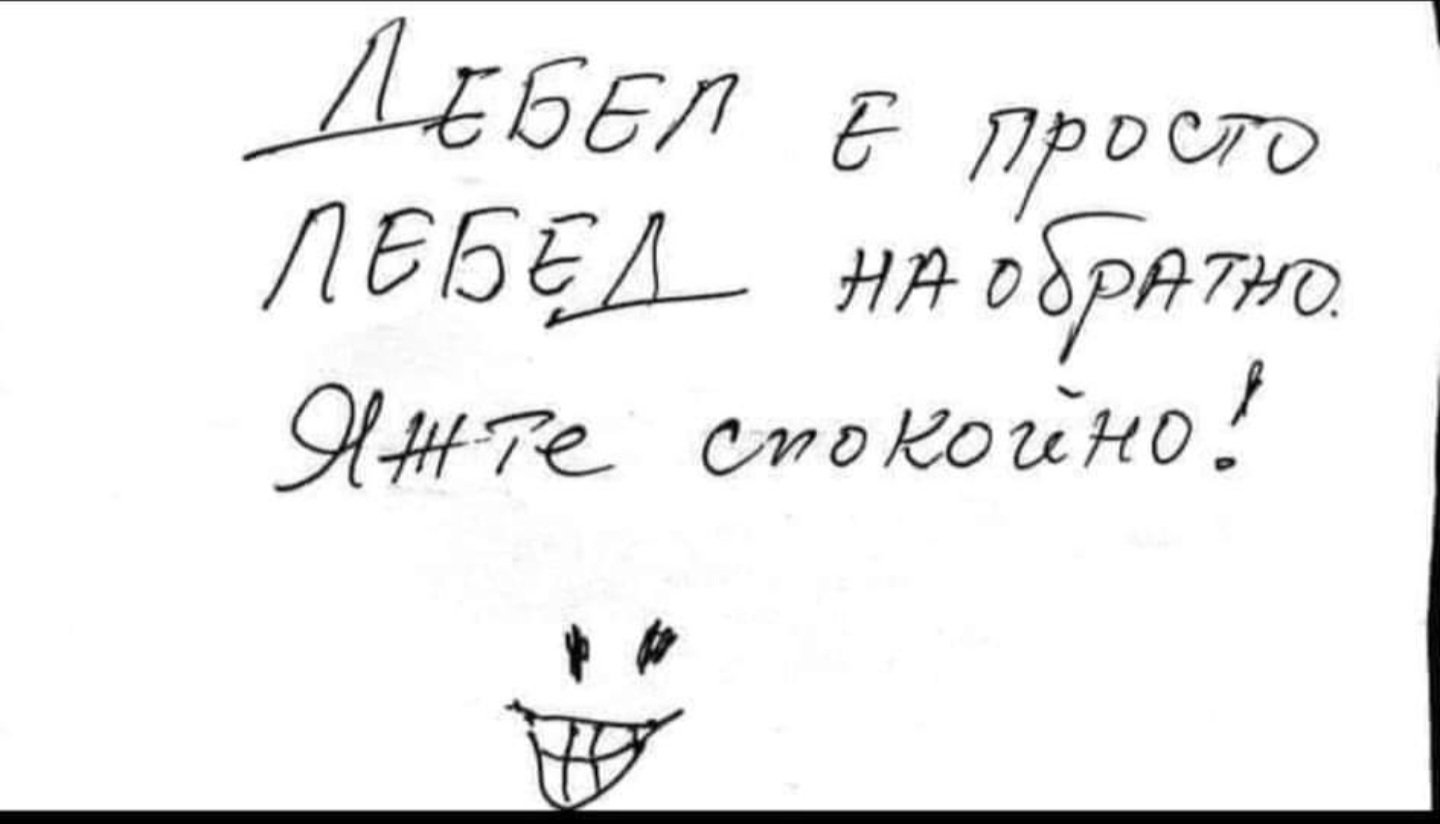 ДЕБЕЛ Е ПРОСТО
ЛЕБЕД НАОБРАТНО.
ЯЖТЕ СПОКОЙНО!